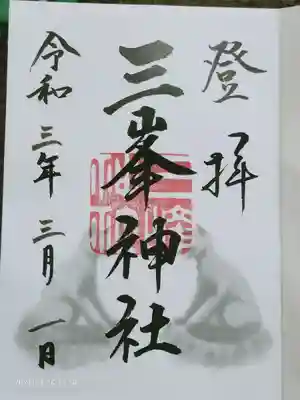 登拝
三峯神社
令和三年三月一日